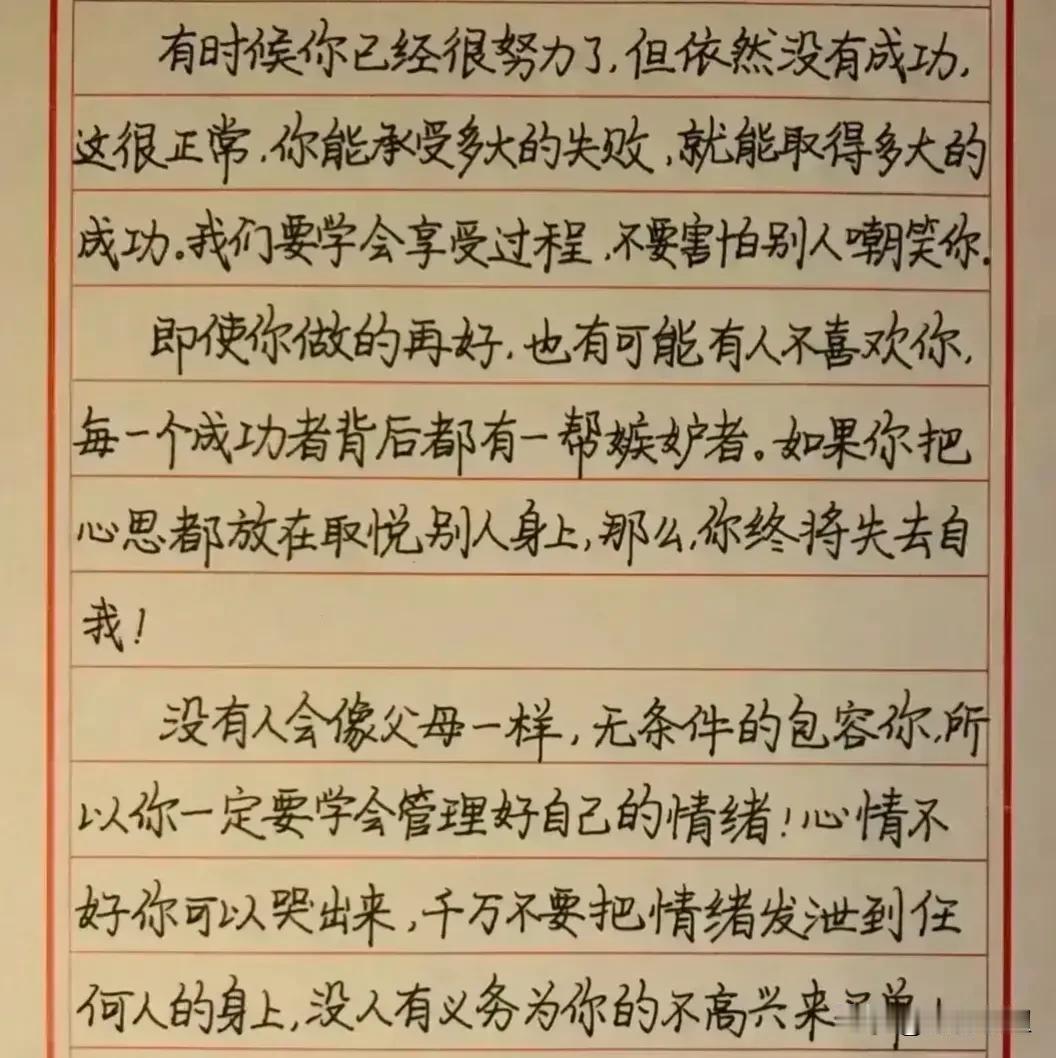 有时候你已经很努力了,但依然没有成功,
这很正常,你能承受多大的失败,就能取得多大的
成功。我们要学会享受过程,不要害怕别人嘲笑你.
即使你做的再好,也有可能有人不喜欢你,
每一个成功者背后都有一帮嫉妒者。如果你把
心思都放在取悦别人身上,那么,你终将失去自
我!
没有人会像父母一样,无条件的包容你,所
以你一定要学会管理好自己的情绪!心情不
好你可以哭出来,千万不要把情绪发泄到任
何人的身上,没人有义务为你的不高兴来单!